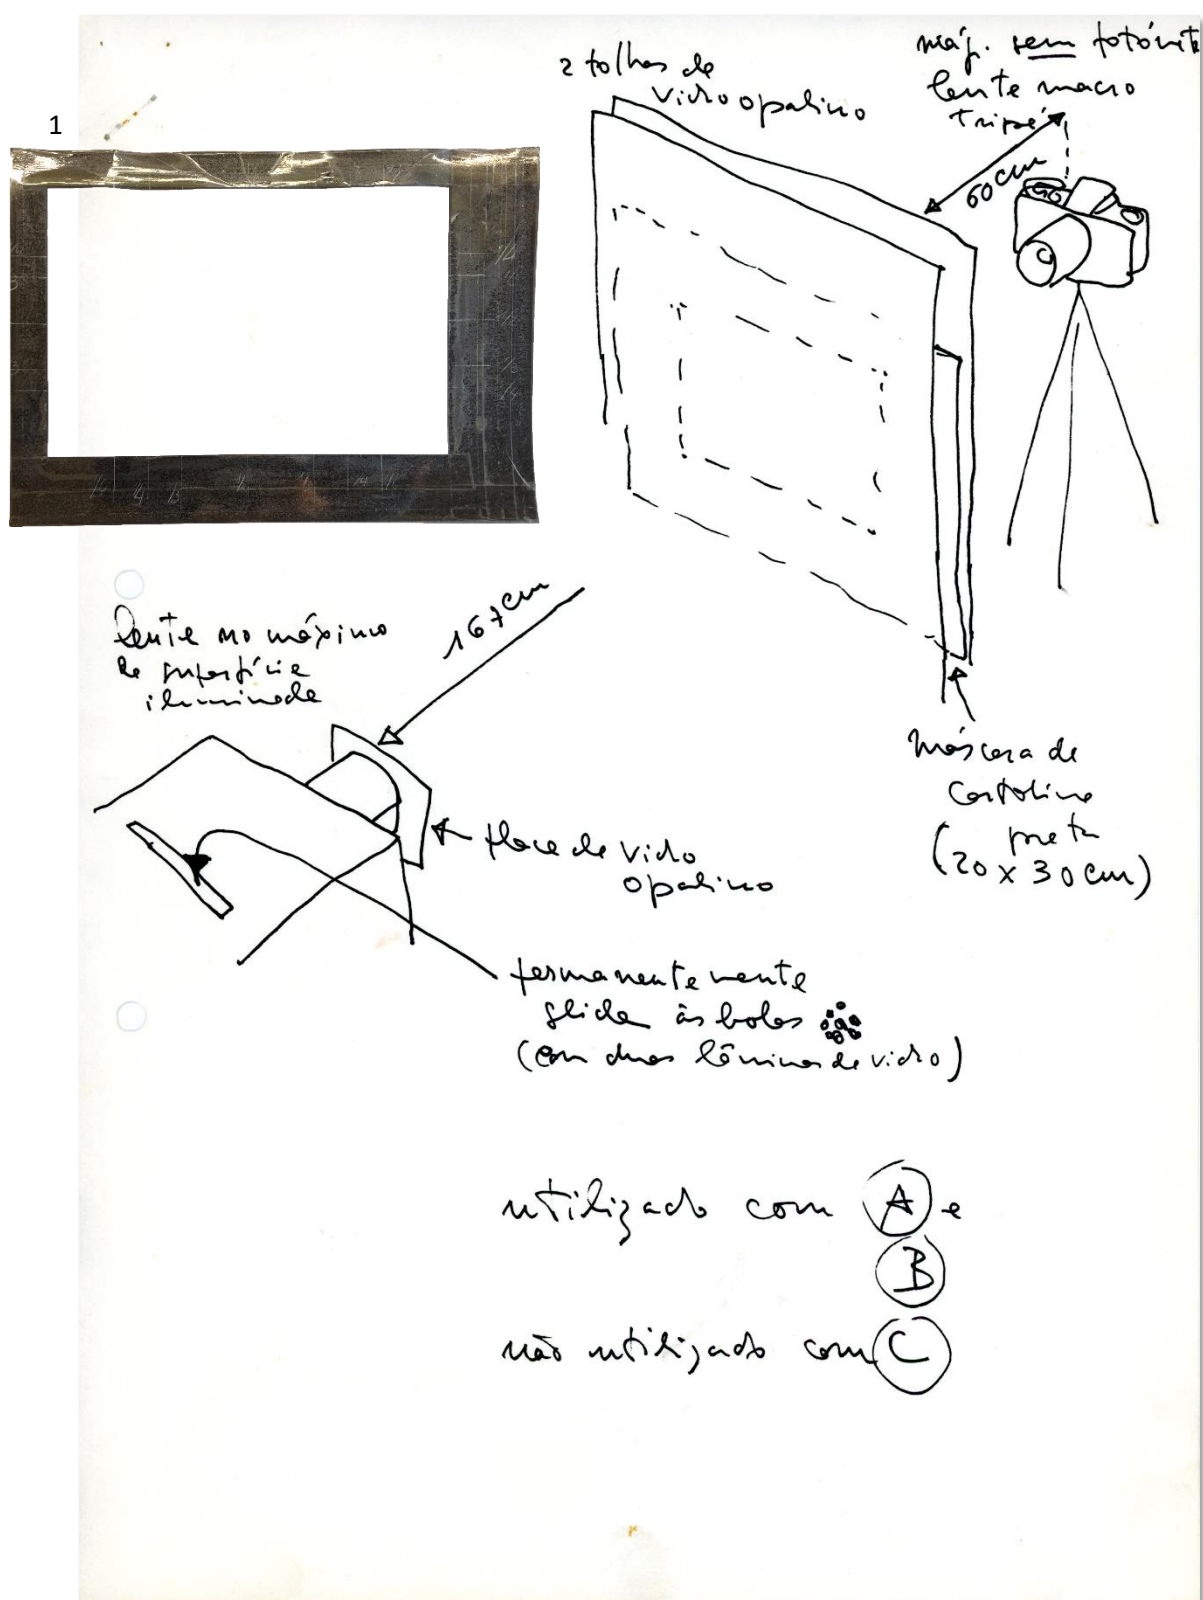 1
2 folhas de
vidro opalino
máq. sem fotómet
lente macro
tripé
60 cm
lente no máximo
de superfície
iluminada
167 cm
máscara de
cartolina
preta
(20 x 30 cm)
placa de vidro
opalino
permanentemente
slide às bolas
(com duas lâminas de vidro)
utilizado com A e
B
não utilizado com C